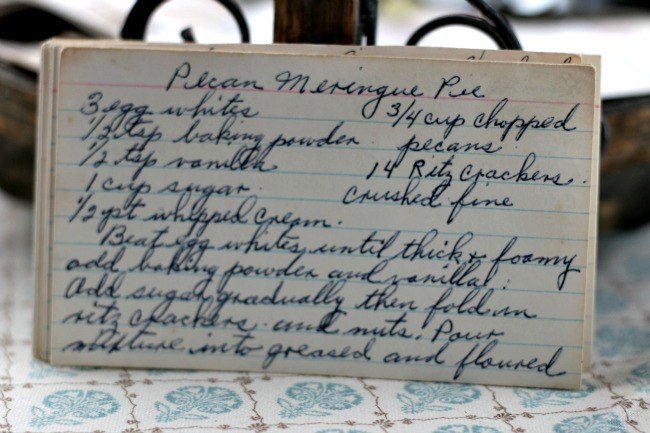 Pecan Meringue Pie
3 egg whites
3/4 cup chopped
1/2 tsp baking powder
pecans
1/2 tsp vanilla
14 Ritz crackers.
1 cup sugar.
crushed fine
1/2 pt whipped cream.
Beat egg whites until thick & foamy
add baking powder and vanilla.
Add sugar gradually then fold in
ritz crackers and nuts. Pour
mixture into greased and floured